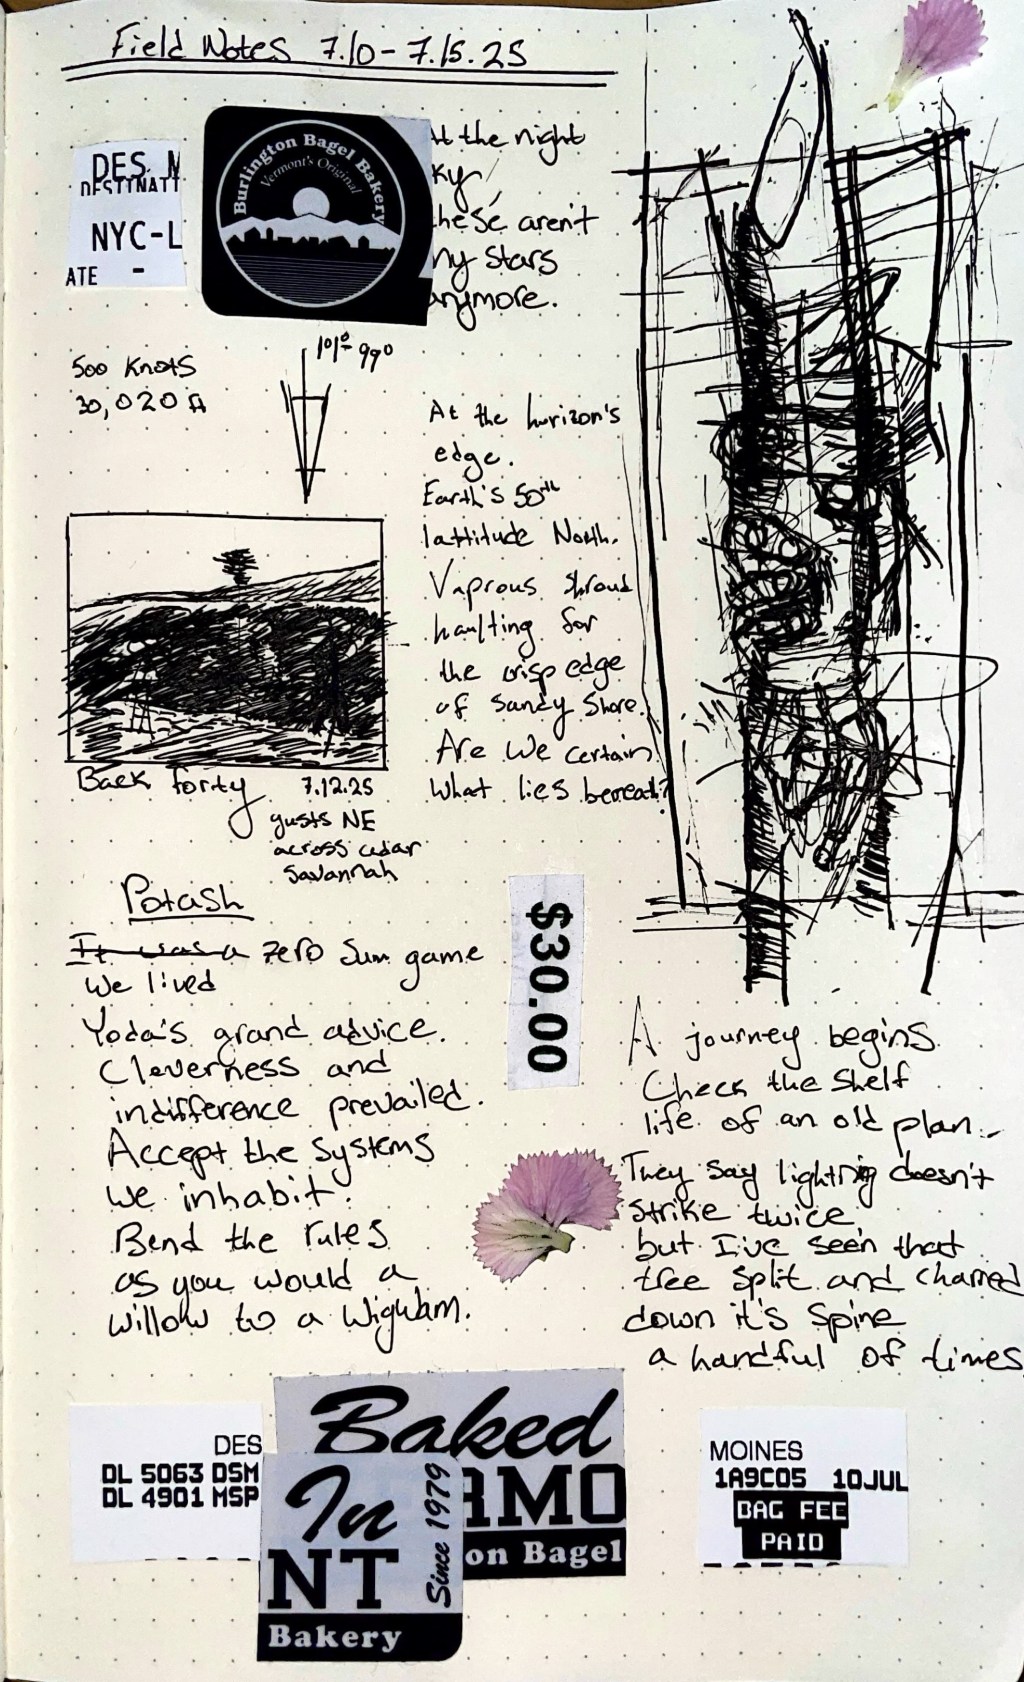 Field Notes 7.10-7.15.25
DES. M
DESTINATI
NYC-L
ATE -
Burlington Bagel Bakery
Vermont's Original
At the night
ky,
these aren't
my stars
anymore.
500 Knots
30,020 ft
101°- 99°
At the horizon's
edge.
Earth's 50th
lattitude North.
Vaprous shroud
haulting for
the crisp edge
of Sandy Shore.
Are we certain
what lies beneath?
Back forty 7.12.25
gusts NE
across cedar
Savannah
Potash
It was a zero sum game
we lived
Yoda's grand advice.
Cleverness and
indifference prevailed.
Accept the systems
we inhabit.
Bend the rules
as you would a
willow to a Wigwam.
$30.00
A journey begins.
Check the shelf
life of an old plan.
They say lightnig doesn't
strike twice,
but I've seen that
tree split and charred
down it's spine
a handful of times
DES
DL 5063 DSM
DL 4901 MSP
Baked
In
RMO
NT
Since 1979
on Bagel
Bakery
MOINES
1A9C05 10JUL
BAG FEE
PAID